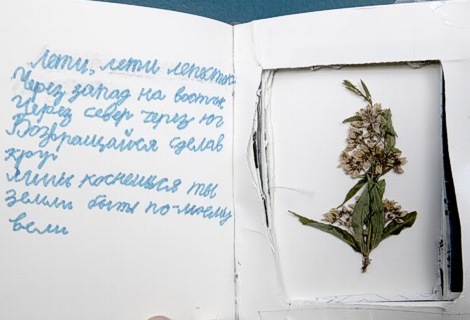 Лети, лети лепесток
Через запад на восток
Через север через юг
Возвращайся сделав
круг
Лишь коснешься ты
земли быть по-моему
вели